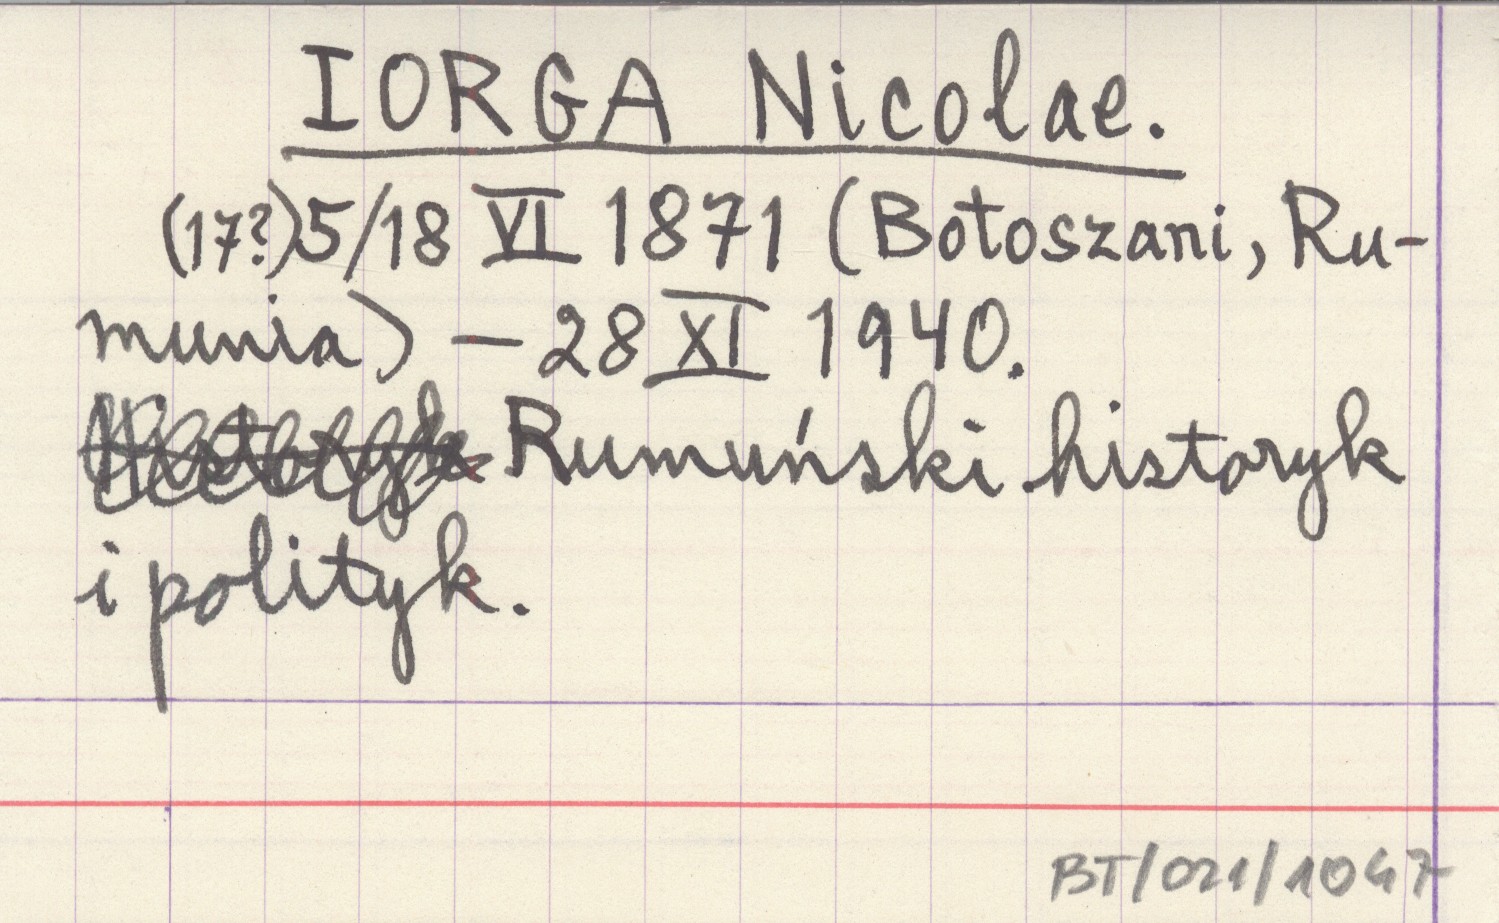 IORGA Nicolae.
(17?)5/18 VI 1871 (Botoszani, Ru-
munia) – 28 XI 1940.
Rumuński historyk
i polityk.
BT/021/1047